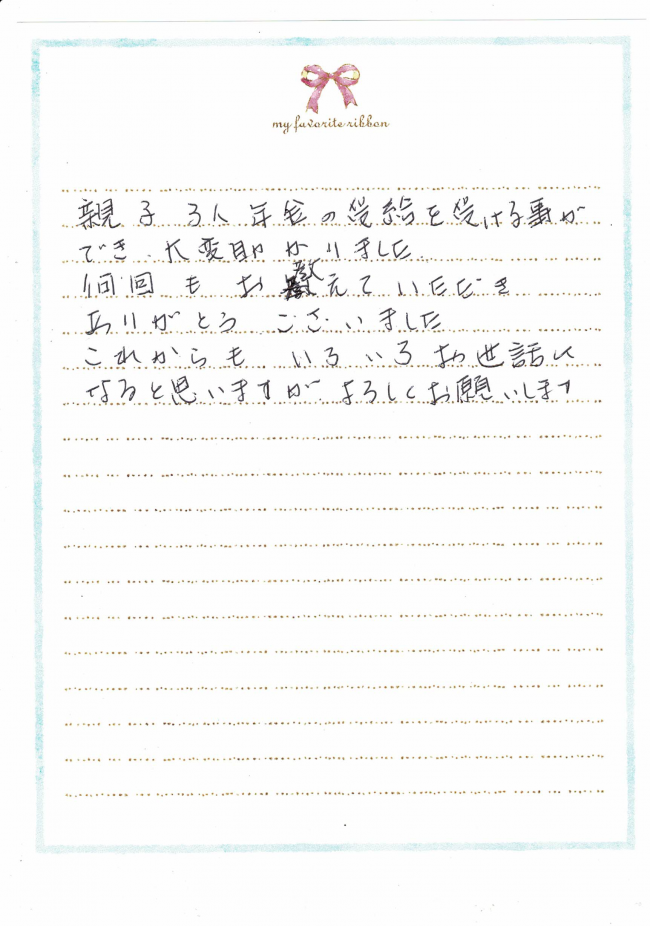 my favorite ribbon
親子3人年金の受給を受ける事が
でき、大変助かりました。
何回もお教えていただき
ありがとう ございました
これからも いろいろお世話に
なると思いますが、よろしくお願いします